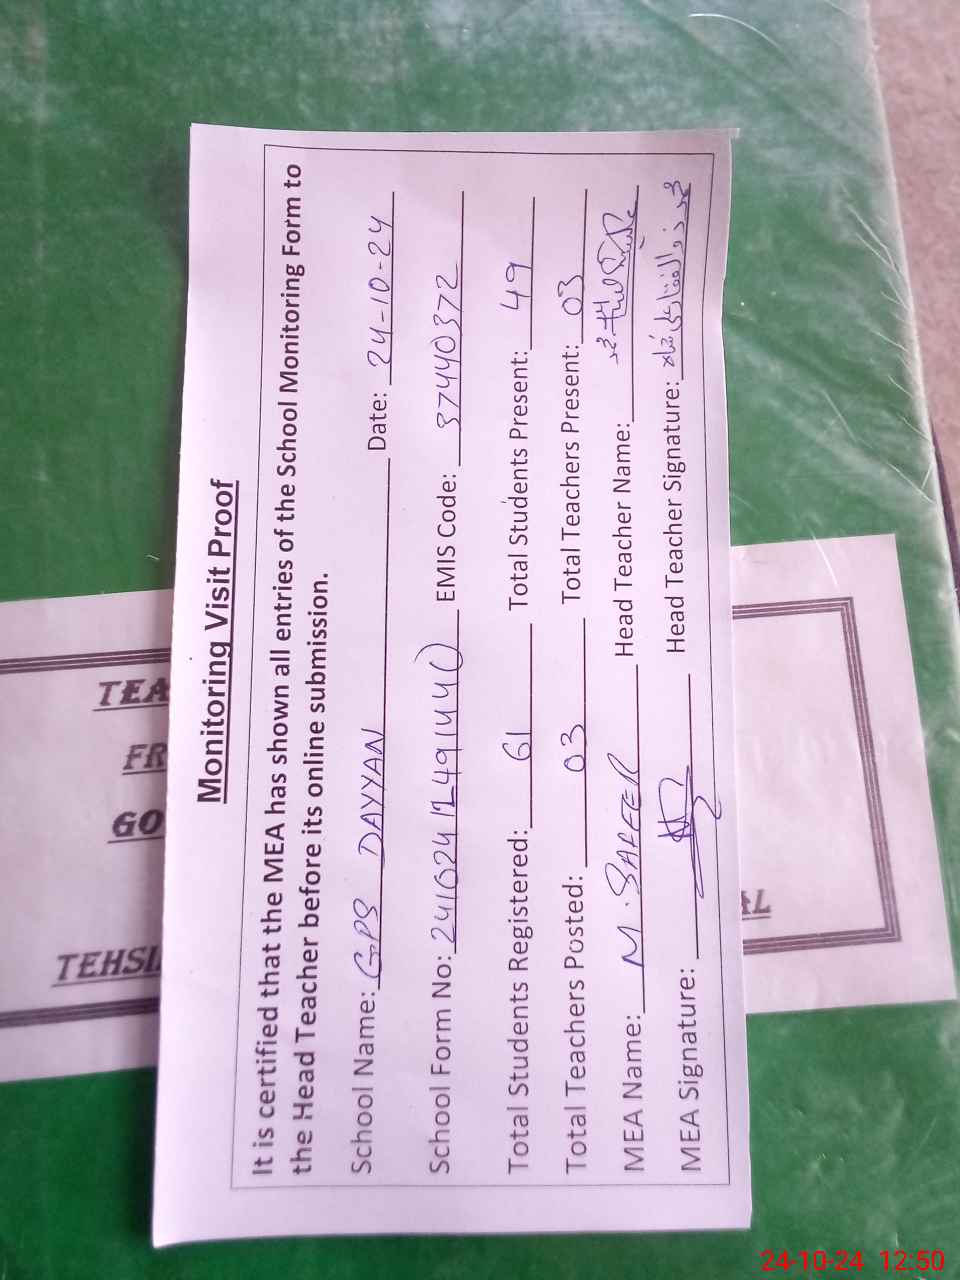 Monitoring Visit Proof
It is certified that the MEA has shown all entries of the School Monitoring Form to
the Head Teacher before its online submission.
School Name: GPS DAYYAN Date: 24-10-24
School Form No: EMIS Code: 37440372
Total Students Registered: 61 Total Students Present: 49
Total Teachers Posted: 03 Total Teachers Present: 03
MEA Name: M. SAFEER Head Teacher Name:
MEA Signature: Head Teacher Signature:
TEA
FR
GO
TEHSI
AL
24-10-24 12:50